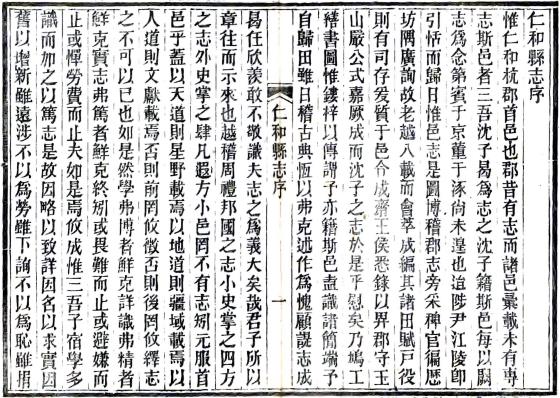 仁和縣志序
惟仁和杭郡首邑也郡昔有志而諸邑彙載未有專
志斯邑者三吾沈子曷為志之沈子籍斯邑每以闕
志為念第賓于京董于涿尚未遑也洎陟尹江陵即
引恬而歸日惟邑志是圖博稽郡志旁采稗官徧歷
坊隅廣詢故老越八載而會萃成編其諸田賦戸役
則有司存爰質于邑令成齋王侯悉錄以畀郡守王
山嚴公式嘉厥成而沈子之志於是乎慰矣乃鳩工
稽書圖惟鏤梓以傳謂子亦籍斯邑盍識諸簡端予
自歸田雖日稽古典恆以弗克述作為愧顧謏志成
仁和縣志序
一
曷任欣羨敢不敬識夫志之為義大矣哉君子所以
章往而示來也越稽周禮邦國之志小史掌之四方
之志外史掌之肆凡遐方小邑罔不有志矧元服首
邑乎蓋以天道則星野載焉以地道則疆域載焉以
人道則文獻載焉否則前罔攸徵否則後罔攸繹志
之不可以已也如是然學弗博者鮮克詳識弗精者
鮮克實志弗篤者鮮克終矧或畏難而止或避嫌而
止或憚勞費而止夫如是焉攸成惟三吾子宿學多
識而加之以篤志是故因略以致詳因名以求實因
舊以增新雖遠涉不以為勞雖下詢不以為恥雖捐